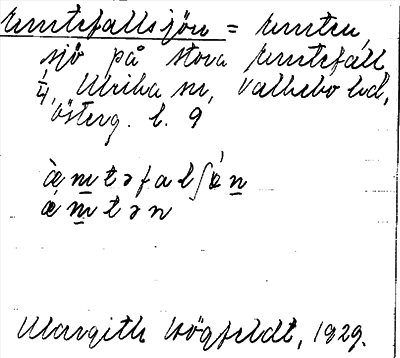 Emtefallsjön = Emten,
sjö på Stora Emtefall
1/4, Ulrika sn, Valkebo hd,
Österg. l. 9
æ̀m̲təfalʃǿn̲
ǽm̲tən
Margith Högfeldt, 1929.